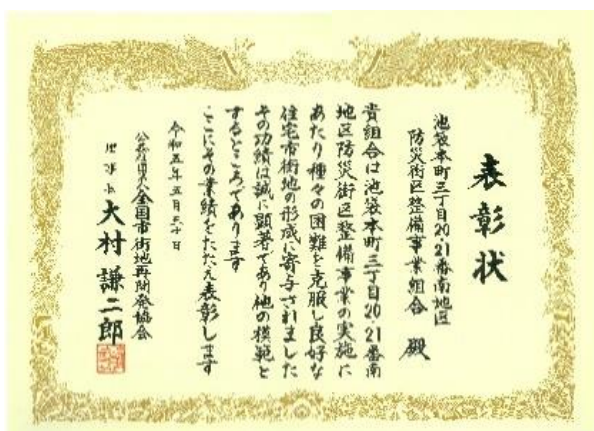 表彰状
池袋本町三丁目20・21番南地区
防災街区整備事業組合 殿
貴組合は池袋本町三丁目20・21番南
地区防災街区整備事業の実施に
あたり種々の困難を克服し良好な
住宅市街地の形成に寄与されました
その功績は誠に顕著であり他の模範と
するところであります
ここにその業績をたたえ表彰します
令和五年五月三十日
公益社団法人全国市街地再開発協会
理事長 大村謙二郎